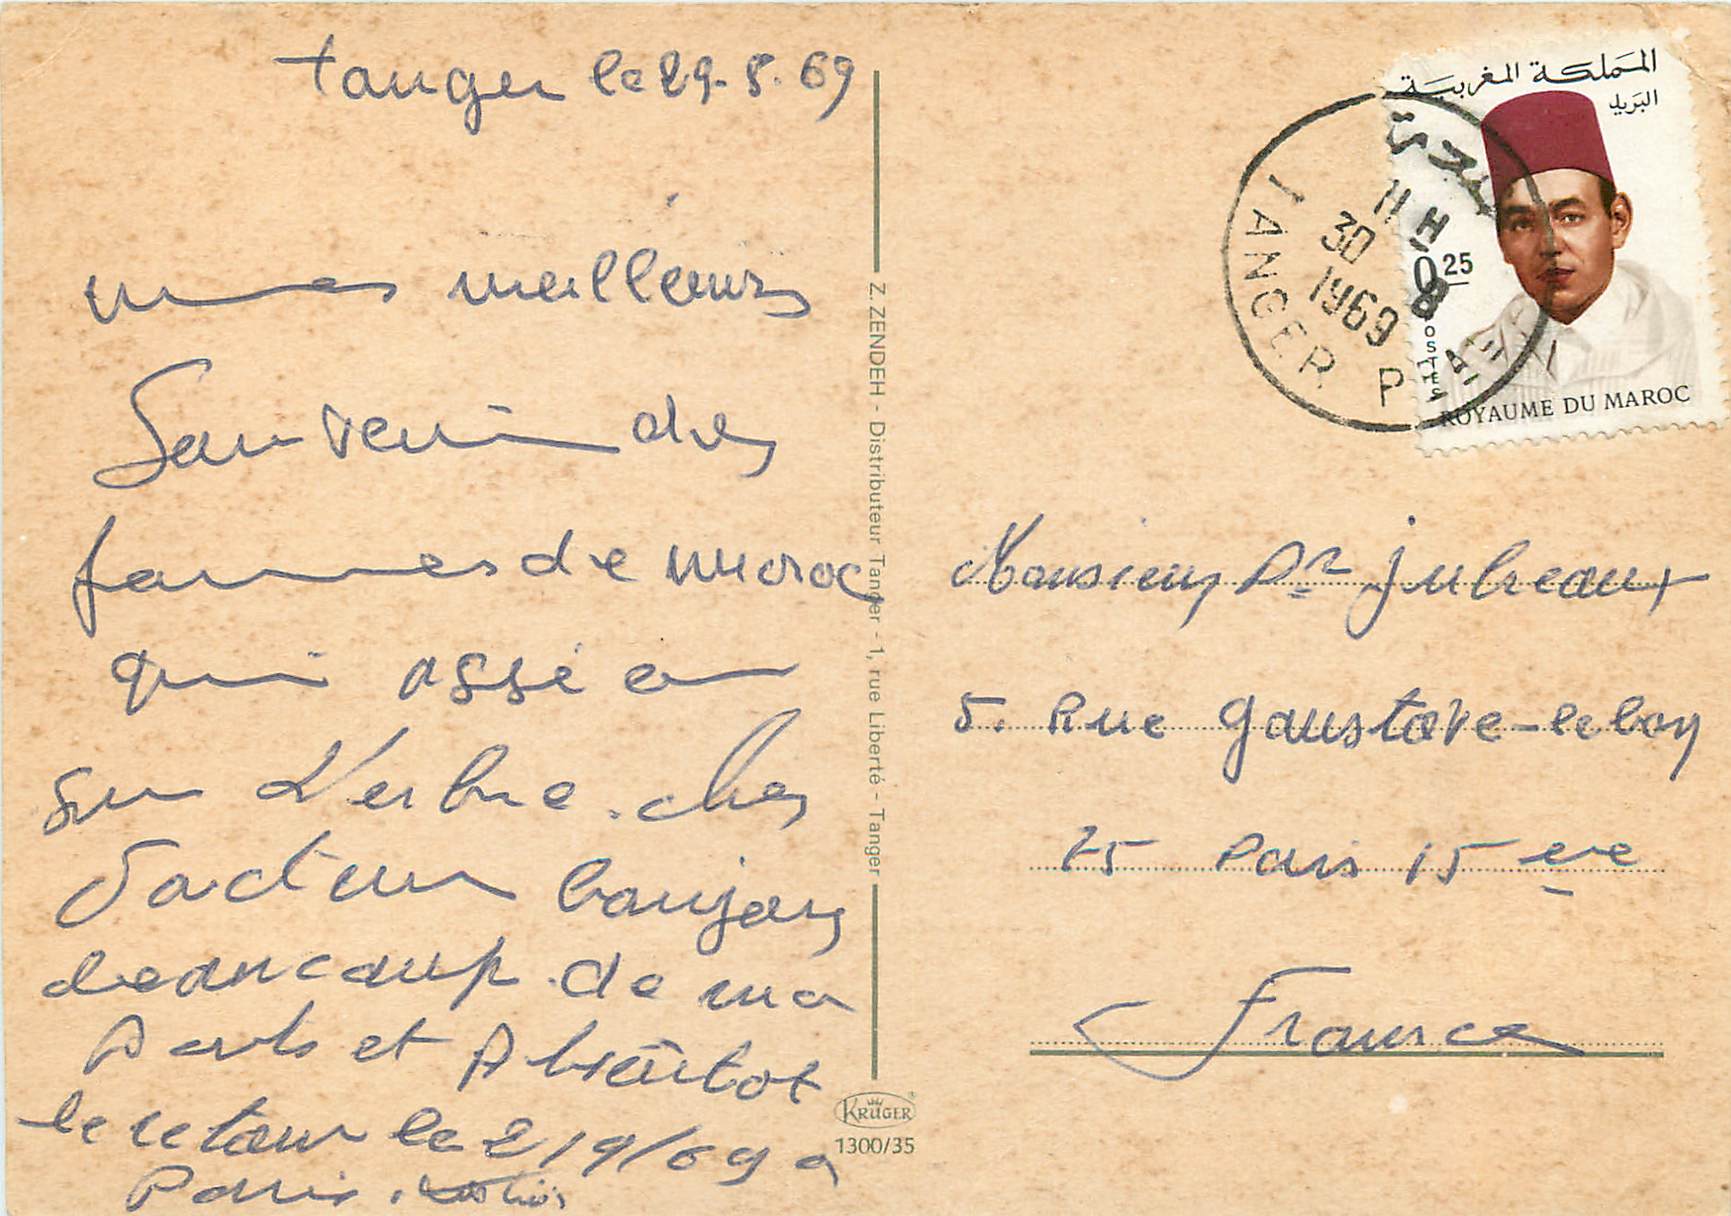 tanger le 29-8.69
mes meilleurs
Souvenir des
fammes de maroc
qui assé en
sur L'erbre. ches
Docteur bonjour
beaucoup de ma
Parts et A bientot
le retour le 2/9/69 a
Paris.
Z. ZENDEH - Distributeur Tanger - 1, rue Liberté - Tanger
KRÜGER
1300/35
المملكة المغربية
البريد
0,25
POSTES
ROYAUME DU MAROC
TANGER
11 H
30 8
1969
Monsieur Dr jubeaux
5. Rue gaustave-le bon
75 Paris 15 eme
France